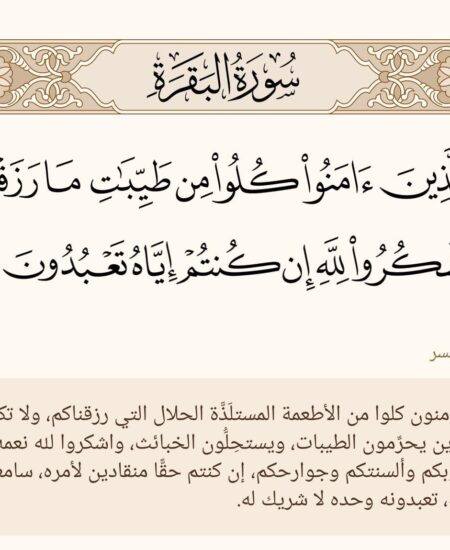 سُورَةُ البَقَرَةِ
ءَامَنُواْ كُلُواْ مِن طَيِّبَٰتِ مَا
لِلَّهِ إِن كُنتُمۡ إِيَّاهُ تَعۡبُدُونَ
كلوا من الأطعمة المستلَذَّة الحلال التي رزقناكم، ولا
يحرِّمون الطيبات، ويستحِلُّون الخبائث، واشكروا لله
وألسنتكم وجوارحكم، إن كنتم حقًّا منقادين لأمره،
تعبدونه وحده لا شريك له.